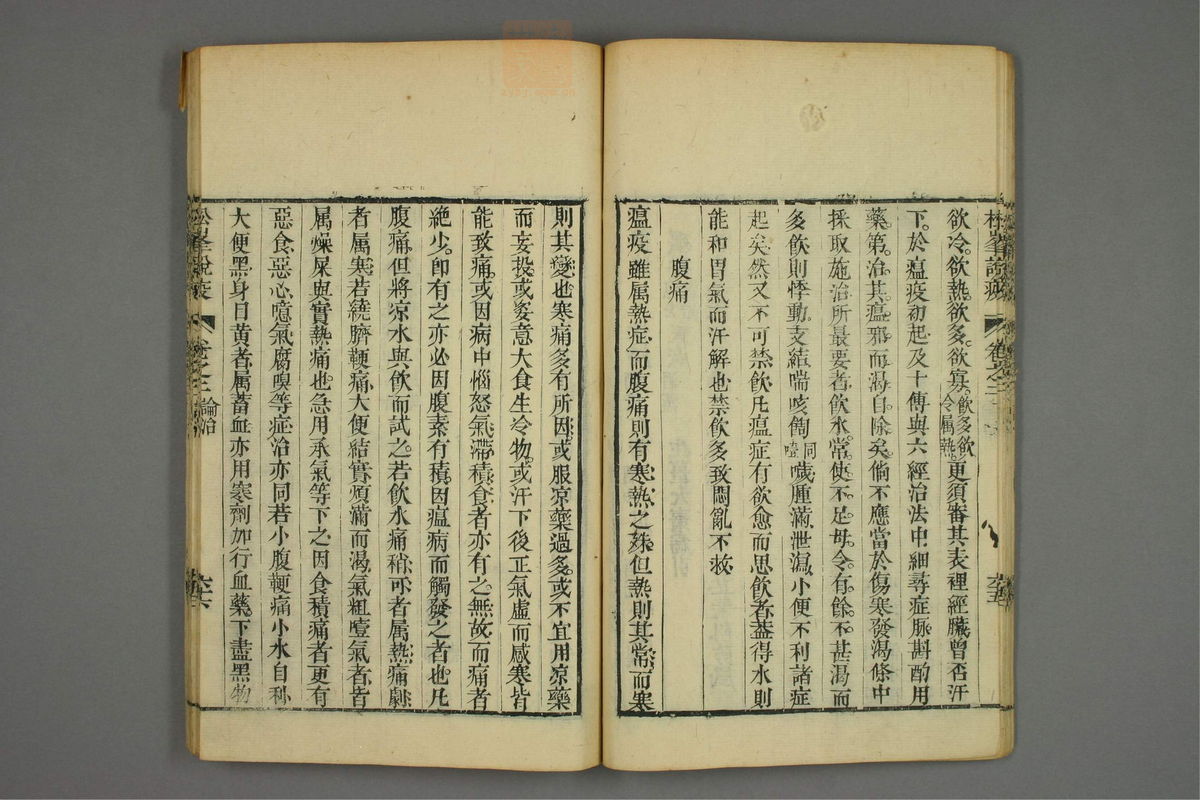 欲冷欲熱欲多欲寡飲多欲冷屬熱更須審其表裡經臟曾否汗
下於瘟疫初起及十傳與六經治法中細尋症脉斟酌用
藥第治其瘟邪而渴自除矣倘不應當於傷寒發渴條中
採取施治所最要者飲水常使不足毋令有餘不甚渴而
多飲則悸動支結喘咳餲同噎噦腫滿泄瀉小便不利諸症
起矣然又不可禁飲凡瘟症有飲愈而思飲者葢得水則
能和胃氣而汗解也禁飲多致悶亂不救
腹痛
瘟疫雖属熱症而腹痛則有寒熱之殊但熱則其常而寒
松峯說疫 卷之三 論治 六六
則其變也寒痛多有所因或服凉藥過多或不宜用凉藥
而妄投或姿意大食生冷物或汗下後正氣虛而感寒皆
能致痛或因病中惱怒氣滯積食者亦有之無故而痛者
絶少即有之亦必因腹素有積因瘟病而觸發之者也凡
腹痛但將凉水與飲而試之若飲水痛稍可者属熱痛劇
者属寒若繞臍鞕痛大便結實煩滿而渴氣粗噎氣者皆
属燥屎與實熱痛也急用承氣等下之因食積痛者更有
惡食惡心噫氣腐嗅等症治亦同若小腹鞕痛小水自利
大便黑身目黄者属蓄血亦用寒劑加行血藥下盡黑物